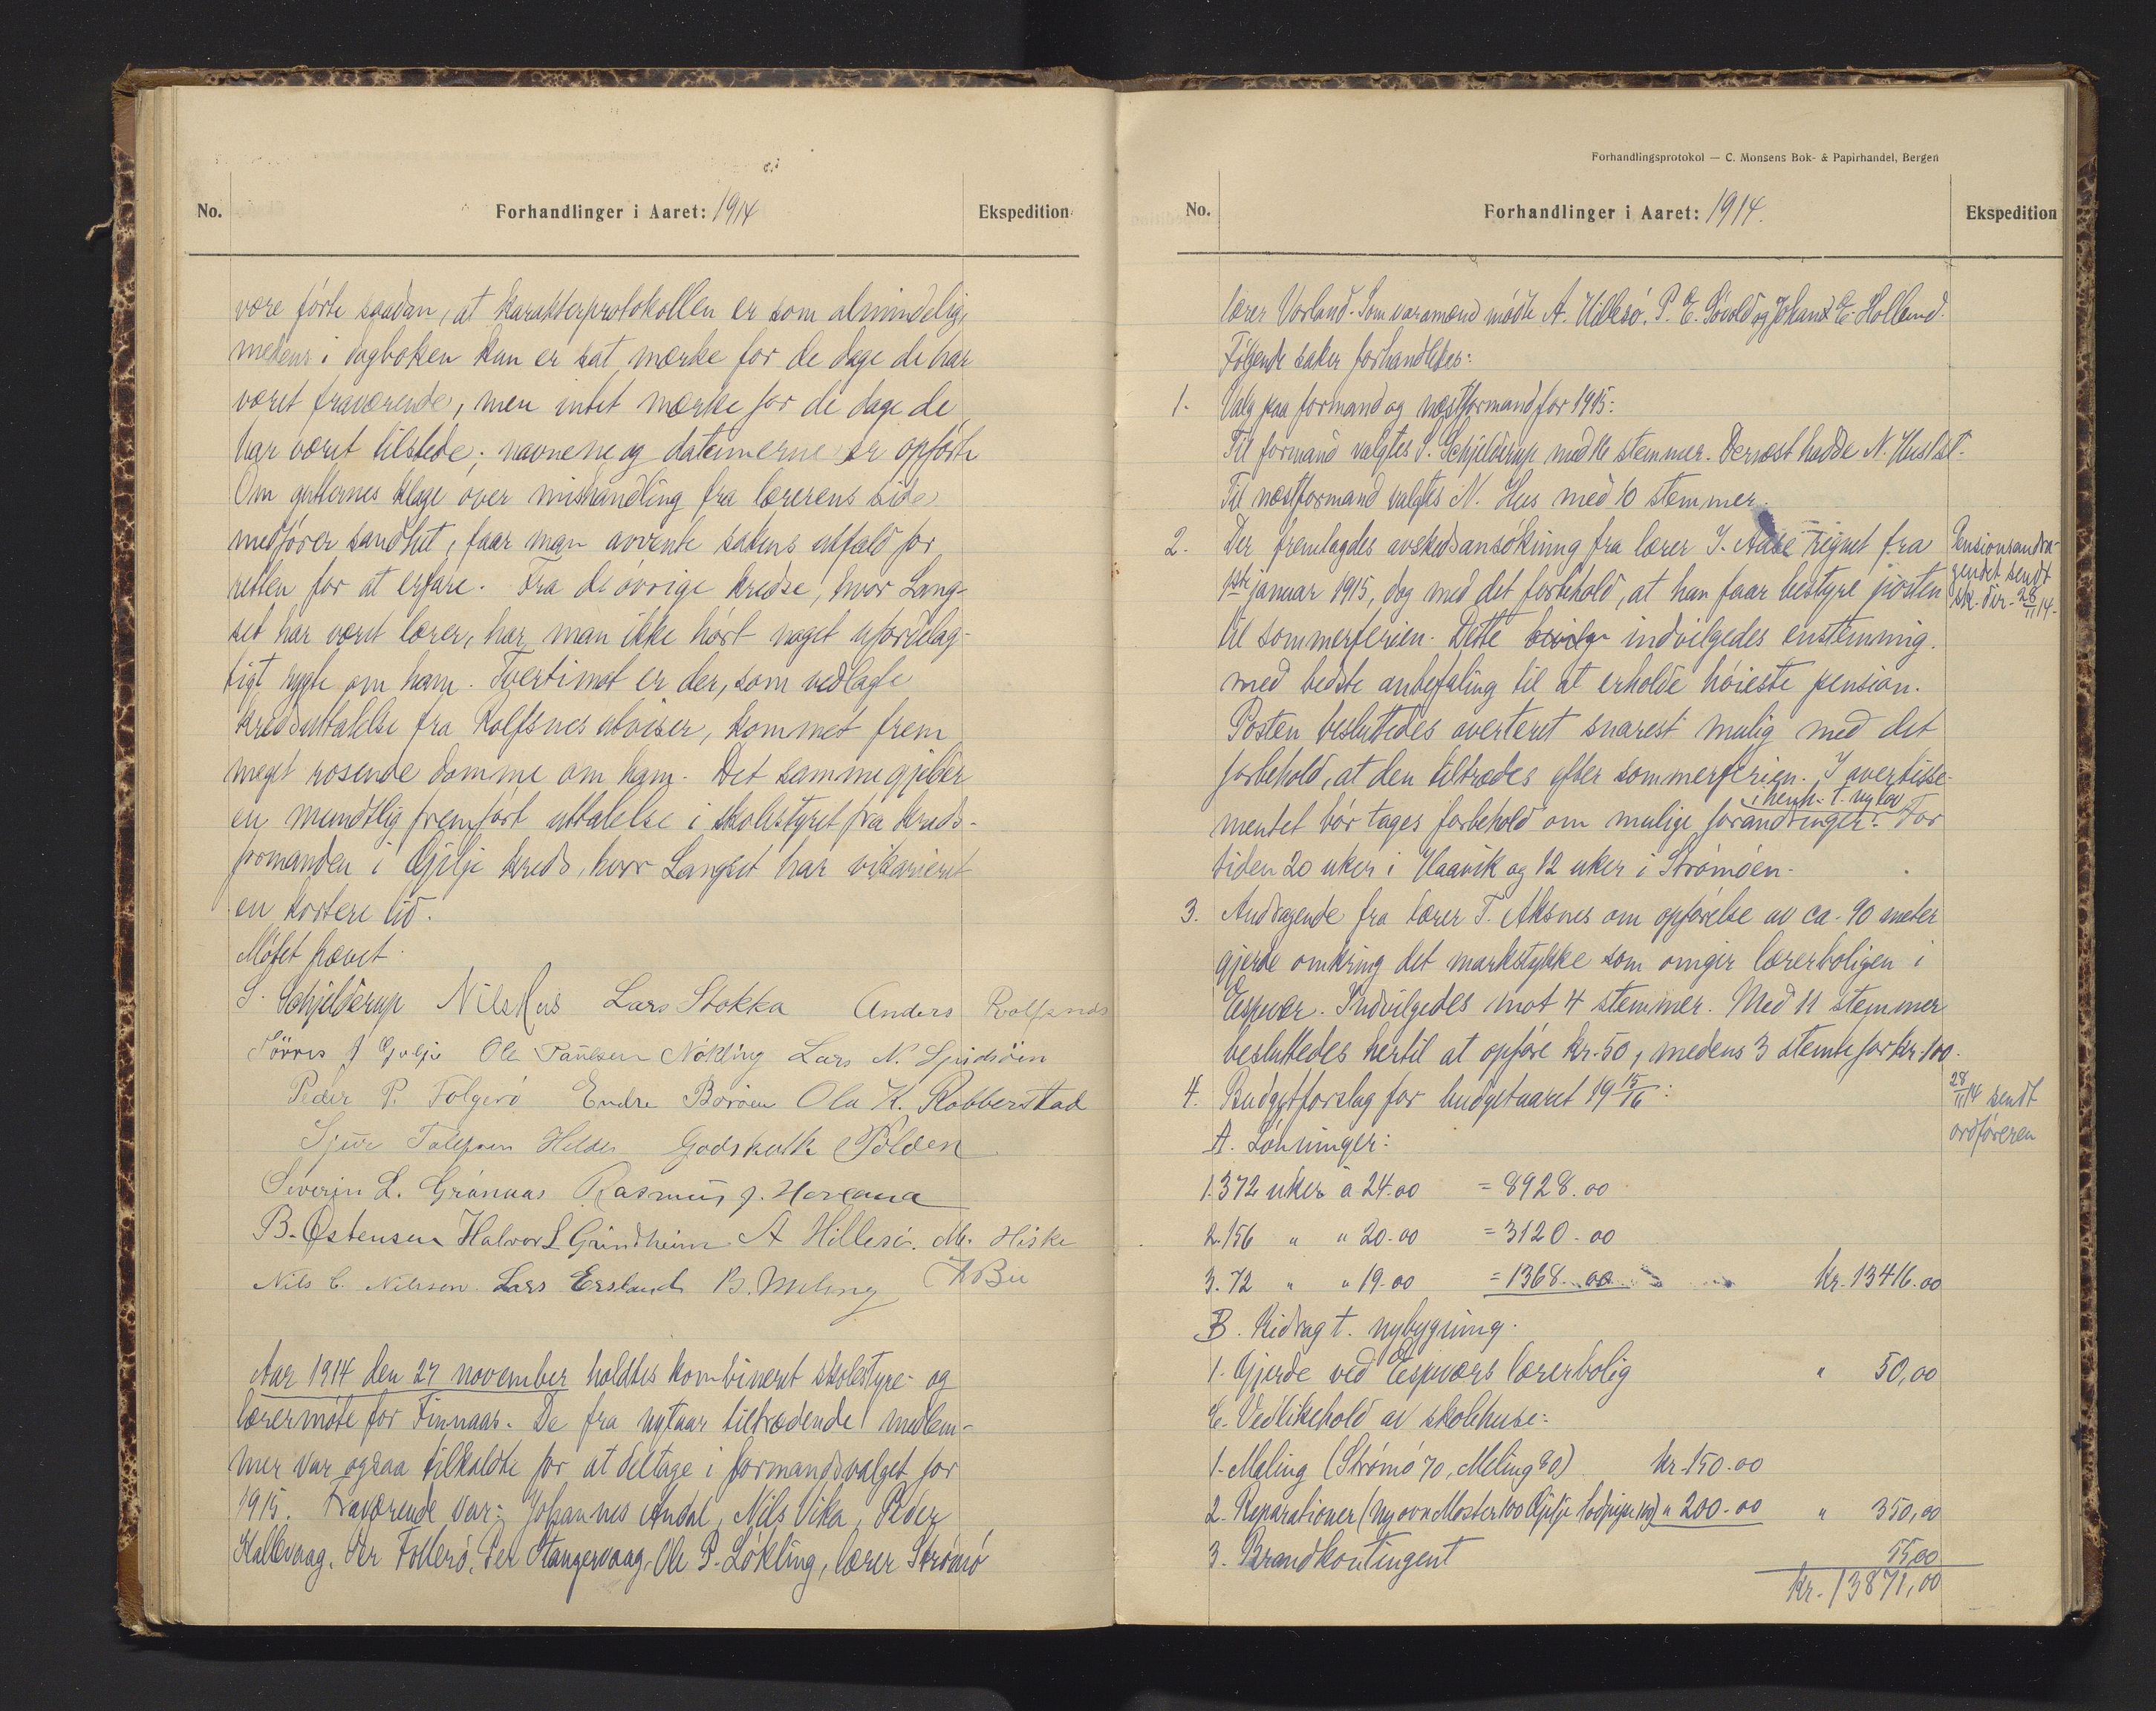 No.
Forhandlinger i Aaret: 1914
Ekspedition
være førte saadan, at karakterprotokollen er som almindelig,
medens i dagboken kun er sat mærke for de dage de har
været fraværende, men intet mærke for de dage de
har været tilstede; navnene og datumerne er opførte
Om gutternes klage over mishandling fra lærerens side
medfører sandhet, faar man avvente sakens utfald for
retten for at erfare. Fra de øvrige kredse, hvor Lang-
set har været lærer, har man ikke hørt noget ufordelag-
tigt rygte om ham. Tvertimot er der, som vedlagte
kredsuttalelse fra Rolfsnes utviser, kommet frem
meget rosende domme om ham. Det samme gjelder
en mundtlig fremført uttalelse i skolestyret fra kreds-
formanden i Gjilje kreds, hvor Langset har vikarieret
en kortere tid.
Møtet hævet.
S. Schjelderup Nils Hus Lars Stokka Anders Rolfsnes
J Gjilje Ole Paulsen Nökling Lars N.
Peder P. Folgerö Endre Boröen Ola K. Robberstad
Sjur Tollefsen Helder Godskalk Polden
Severin L. Grönnaas Rasmus J. Hovland
B. Østensen Halvor L Grindheim A Hillesö. M. Hiske
Nils C. Nilssen. Lars Ersland B. Meling Bu
Aar 1914 den 27 november holdtes kombineret skolestyre- og
lærermøte for Finnaas. De fra nytaar tiltrædende medlem-
mer var ogsaa tilkaldte for at deltage i formandsvalget for
1915. Fraværende var: Johannes Andal, Nils Vika, Peder
Kallevaag, Per Follerö, Per Stangervaag, Ole P. Løkling, lærer Strömö
Forhandlingsprotokol — C. Monsens Bok- & Papirhandel, Bergen
No.
Forhandlinger i Aaret: 1914.
Ekspedition
lærer Vorland. Som varamænd mödte A. Hillesö, P. E. Sövold og Johans E. Holland.
Følgende saker forhandledes:
1. Valg paa formand og næstformand for 1915:
Til formand valgtes S. Schjelderup med 16 stemmer. Dernæst hadde N. Hus 1 st.
Til næstformand valgtes N. Hus med 10 stemmer.
2. Der fremlagdes avskedsansøkning fra lærer J. Aase regnet fra
1ste januar 1915, dog med det forbehold, at han faar bestyre posten
til sommerferien. Dette indvilgedes enstemmig.
med bedste anbefaling til at erholde høieste pension.
Pensionsandra-
gendet sendt
sk.dir. 28/11 14.
Posten besluttedes averteret snarest mulig med det
forbehold, at den tiltrædes efter sommerferien. I avertisse-
mentet bør tages forbehold om mulige forandringer i henh. t. ny lov. For
tiden 20 uker i Haavik og 12 uker i Strømöen.
3. Andragende fra lærer T. Aksnes om opførelse av ca. 90 meter
gjerde omkring det markstykke som omgir lærerboligen i
Espevær. Indvilgedes mot 4 stemmer. Med 11 stemmer
besluttedes hertil at opføre kr. 50, medens 3 stemte for kr. 100.
4. Budgetforslag for budgetaaret 19 15/16:
28/11 14 sendt
ordføreren
A. Lønninger:
1. 372 uker à 24.00 = 8928.00
2. 156 " " 20.00 = 3120.00
3. 72 " " 19.00 = 1368.00 kr. 13416.00
B. Bidrag t. nybygning.
1. Gjerde ved Espeværs lærerbolig " 50,00
C. Vedlikehold av skolehuse:
1. Maling (Strømö 70, Meling 80) kr. 150.00
2. Reparationer (ny ovn Moster 100 Gjilje 100) " 200.00 " 350,00
3. Brandkontingent 55,00
kr. 13871,00